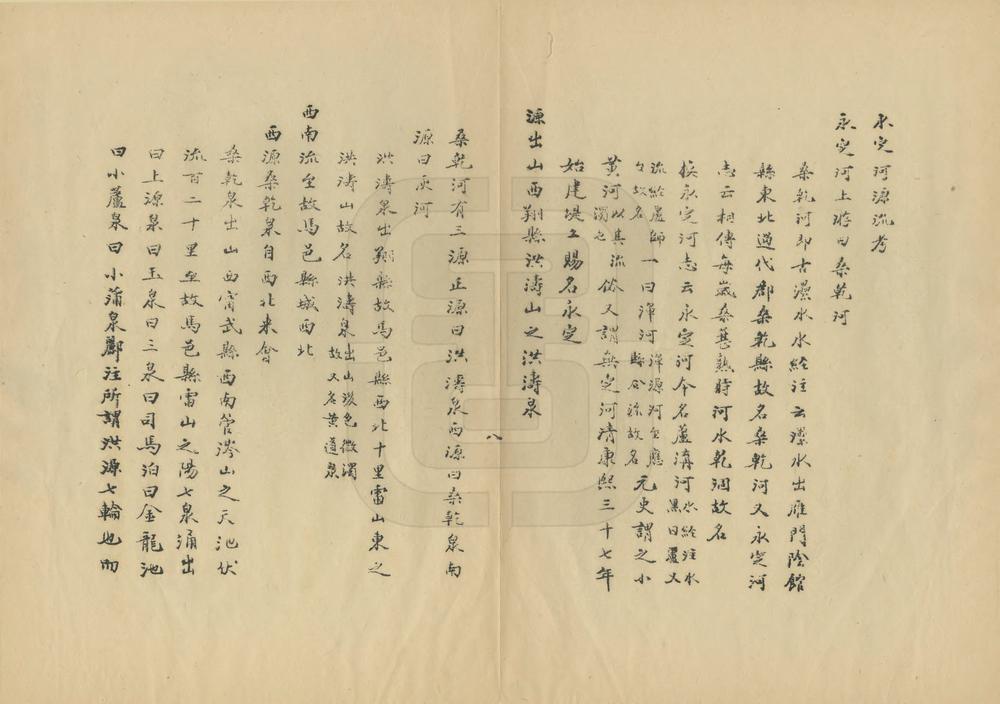 永定河源流考
永定河上游曰桑乾河
桑乾河即古㶟水水經注云㶟水出雁門陰館
縣東北過代郡桑乾縣故名桑乾河又永定河
志云相傳每歲桑葚熟時河水乾涸故名
按永定河志云永定河今名蘆溝河水經注水黑曰盧又
流經盧師故名一曰渾河渾源河至應縣合流故名元史謂之小
黃河以其流濁也又謂無定河清康熙三十七年
始建堤工賜名永定
源出山西朔縣洪濤山之洪濤泉
桑乾河有三源正源曰洪濤泉西源曰桑乾泉南
源曰灰河
洪濤泉出朔縣故馬邑縣西北十里雷山東之
洪濤山故名洪濤泉出山後色微濁故又名黃道泉
西南流至故馬邑縣城西北
西源桑乾泉自西北來會
桑乾泉出山西甯武縣西南管涔山之天池伏
流百二十里至故馬邑縣雷山之陽七泉涌出
曰上源泉曰玉泉曰三泉曰司馬泊曰金龍池
曰小蘆泉曰小蒲泉酈注所謂洪源七輪也而
八